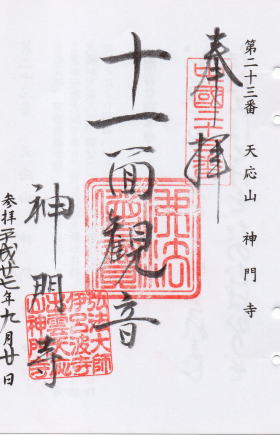 第二十三番 天応山 神門寺
奉拝
十一面観音
神門寺
弘法大師
伊呂波寺
出雲天応
山神門寺
参拝 平成廿七年九月廿日